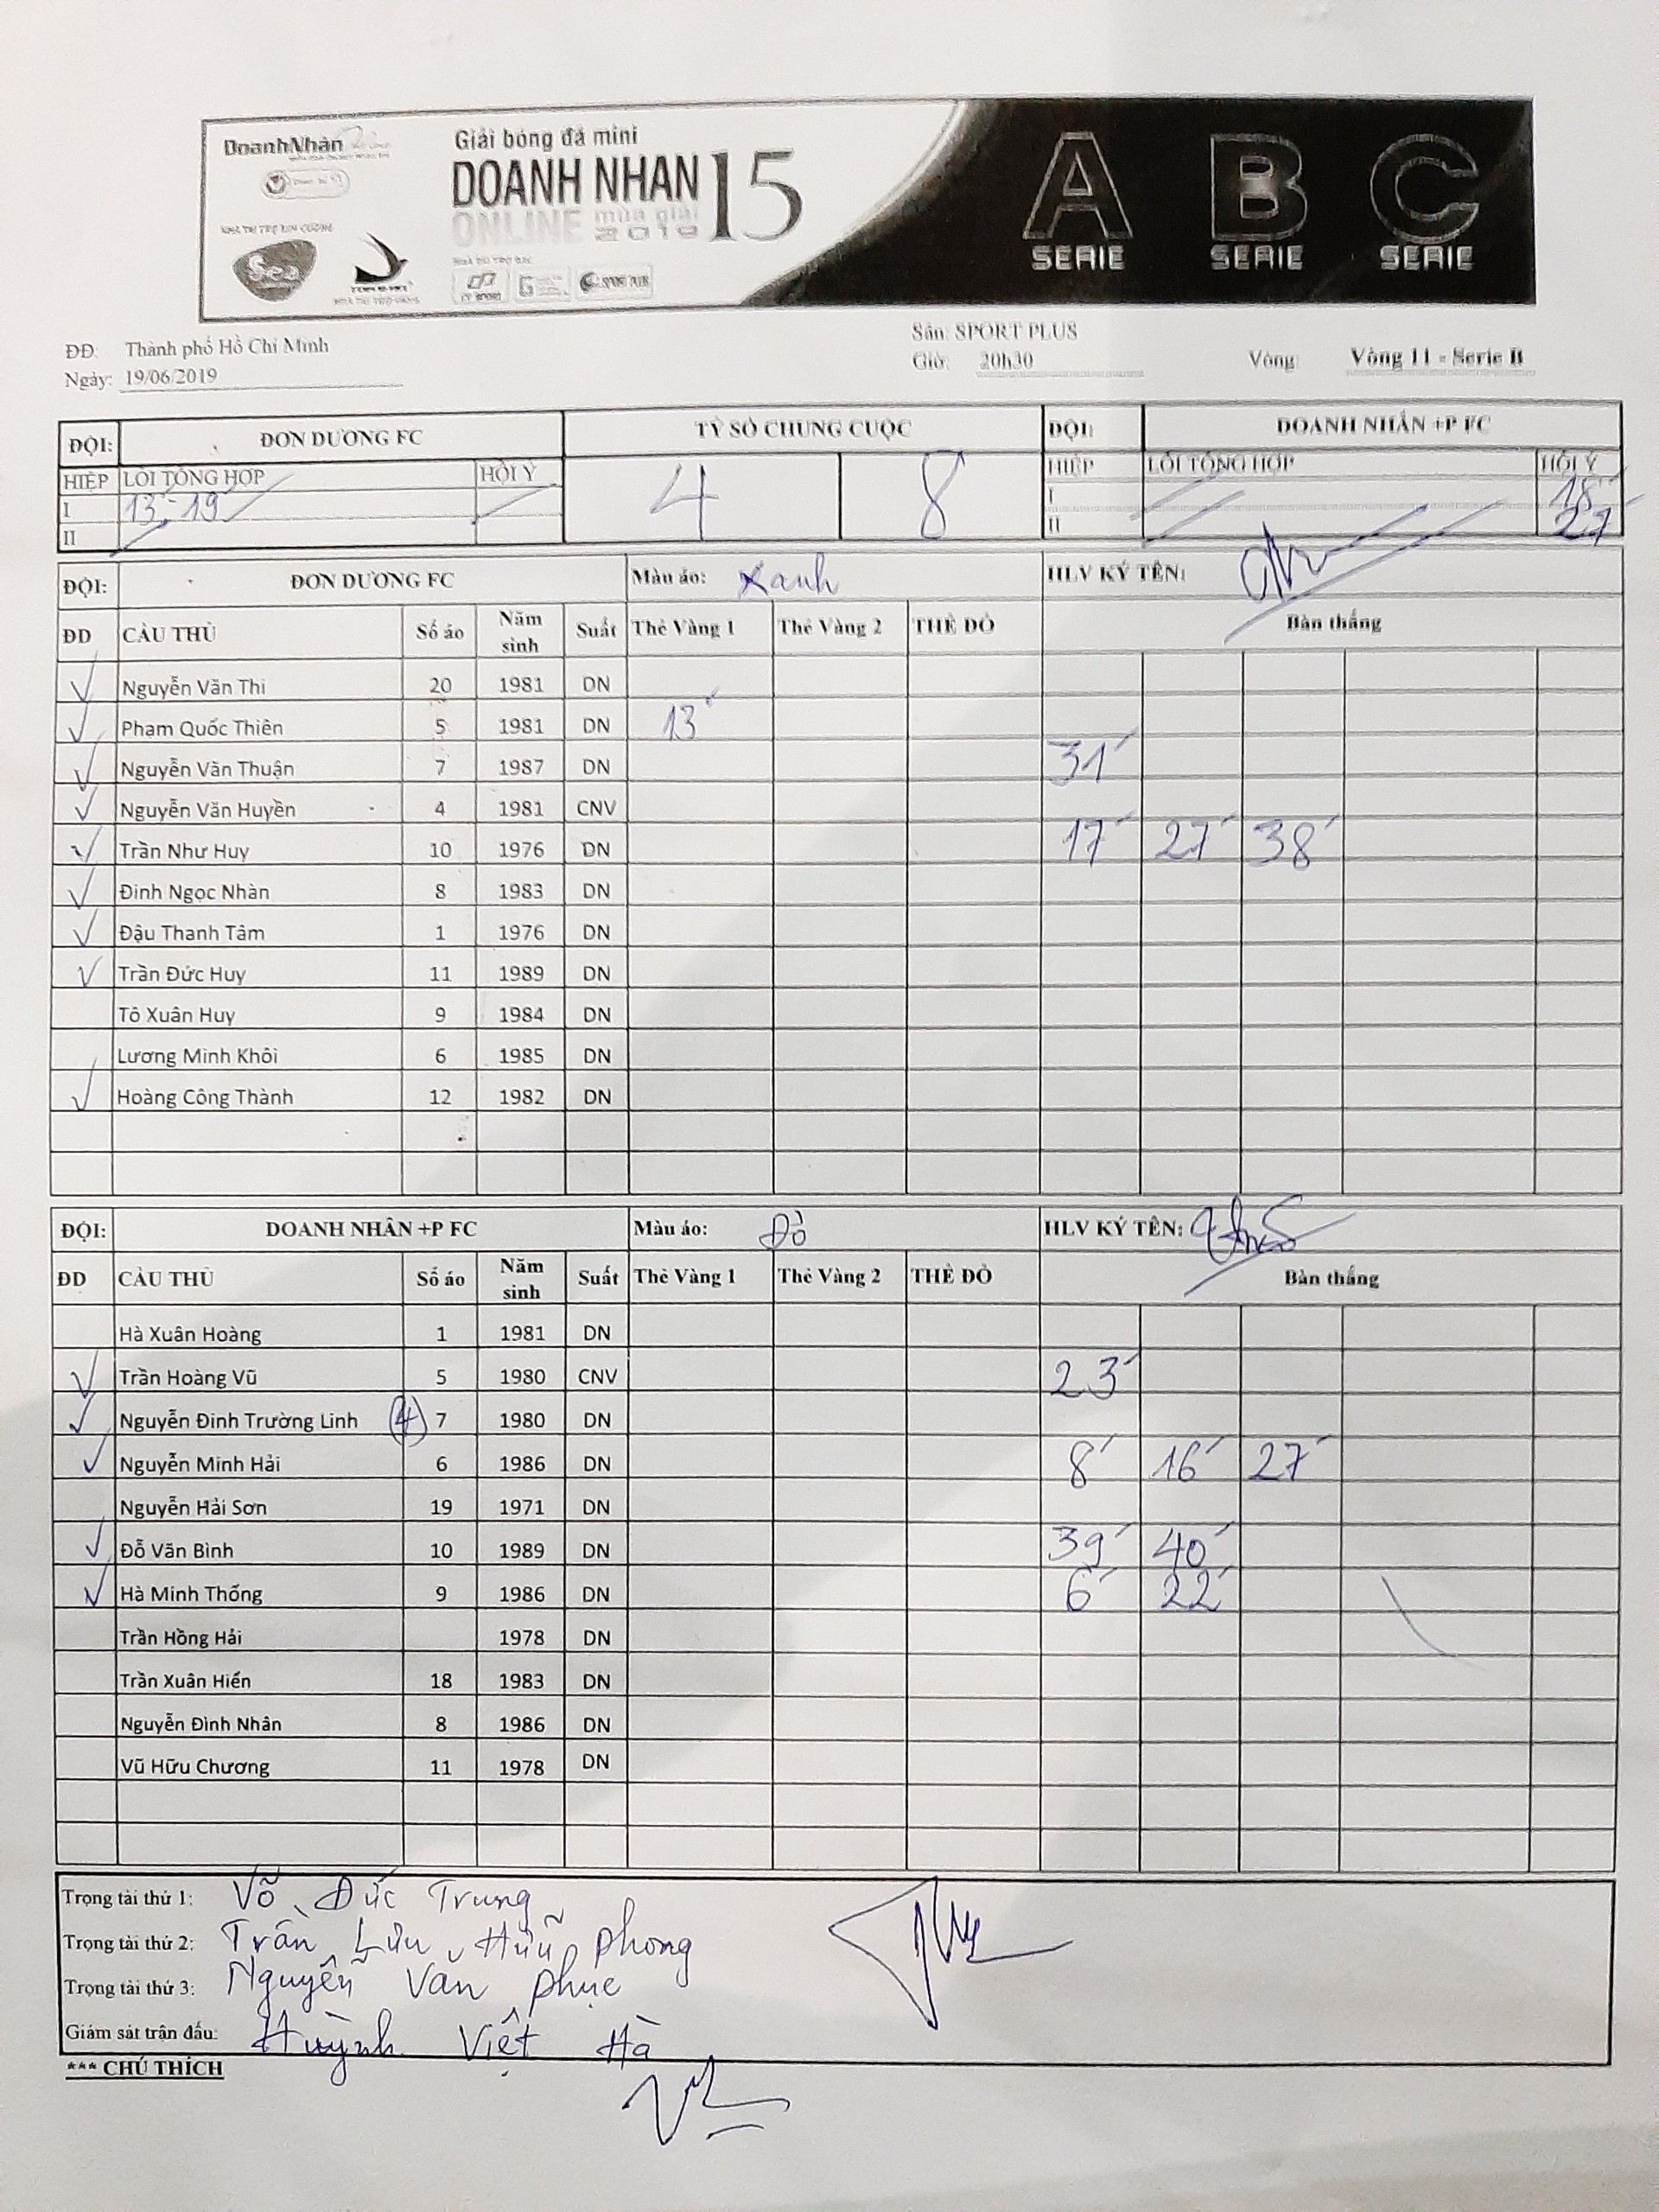 DoanhNhân
Giải bóng đá mini
DOANH NHAN 15
ONLINE mùa giải 2019
NHÀ TÀI TRỢ KIM CƯƠNG
Sea
A SERIE B SERIE C SERIE
ĐĐ: Thành phố Hồ Chí Minh
Sân: SPORT PLUS
Ngày: 19/06/2019
Giờ: 20h30
Vòng: Vòng 11 - Serie B
ĐỘI: ĐƠN DƯƠNG FC TỶ SỐ CHUNG CUỘC ĐỘI: DOANH NHÂN +P FC
HIỆP LỖI TỔNG HỢP HỘI Ý 4 8 HIỆP LỖI TỔNG HỢP HỘI Ý
I 13'-19' I 18'
II II 27'
ĐỘI: ĐƠN DƯƠNG FC Màu áo: Xanh HLV KÝ TÊN:
ĐD CẦU THỦ Số áo Năm sinh Suất Thẻ Vàng 1 Thẻ Vàng 2 THẺ ĐỎ Bàn thắng
✓ Nguyễn Văn Thi 20 1981 DN
✓ Phạm Quốc Thiên 5 1981 DN 13'
✓ Nguyễn Văn Thuận 7 1987 DN 31'
✓ Nguyễn Văn Huyền 4 1981 CNV
✓ Trần Như Huy 10 1976 DN 17' 27' 38'
✓ Đinh Ngọc Nhàn 8 1983 DN
✓ Đậu Thanh Tâm 1 1976 DN
✓ Trần Đức Huy 11 1989 DN
Tô Xuân Huy 9 1984 DN
Lương Minh Khôi 6 1985 DN
✓ Hoàng Công Thành 12 1982 DN
ĐỘI: DOANH NHÂN +P FC Màu áo: Đỏ HLV KÝ TÊN:
ĐD CẦU THỦ Số áo Năm sinh Suất Thẻ Vàng 1 Thẻ Vàng 2 THẺ ĐỎ Bàn thắng
Hà Xuân Hoàng 1 1981 DN
✓ Trần Hoàng Vũ 5 1980 CNV 23'
✓ Nguyễn Đinh Trường Linh 4 7 1980 DN
✓ Nguyễn Minh Hải 6 1986 DN 8' 16' 27'
Nguyễn Hải Sơn 19 1971 DN
✓ Đỗ Văn Bình 10 1989 DN 39' 40'
✓ Hà Minh Thống 9 1986 DN 6' 22'
Trần Hồng Hải 1978 DN
Trần Xuân Hiến 18 1983 DN
Nguyễn Đình Nhân 8 1986 DN
Vũ Hữu Chương 11 1978 DN
Trọng tài thứ 1: Võ Đức Trung
Trọng tài thứ 2: Trần Lưu Hữu Phong
Trọng tài thứ 3: Nguyễn Văn Phúc
Giám sát trận đấu: Huỳnh Việt Hà
*** CHÚ THÍCH